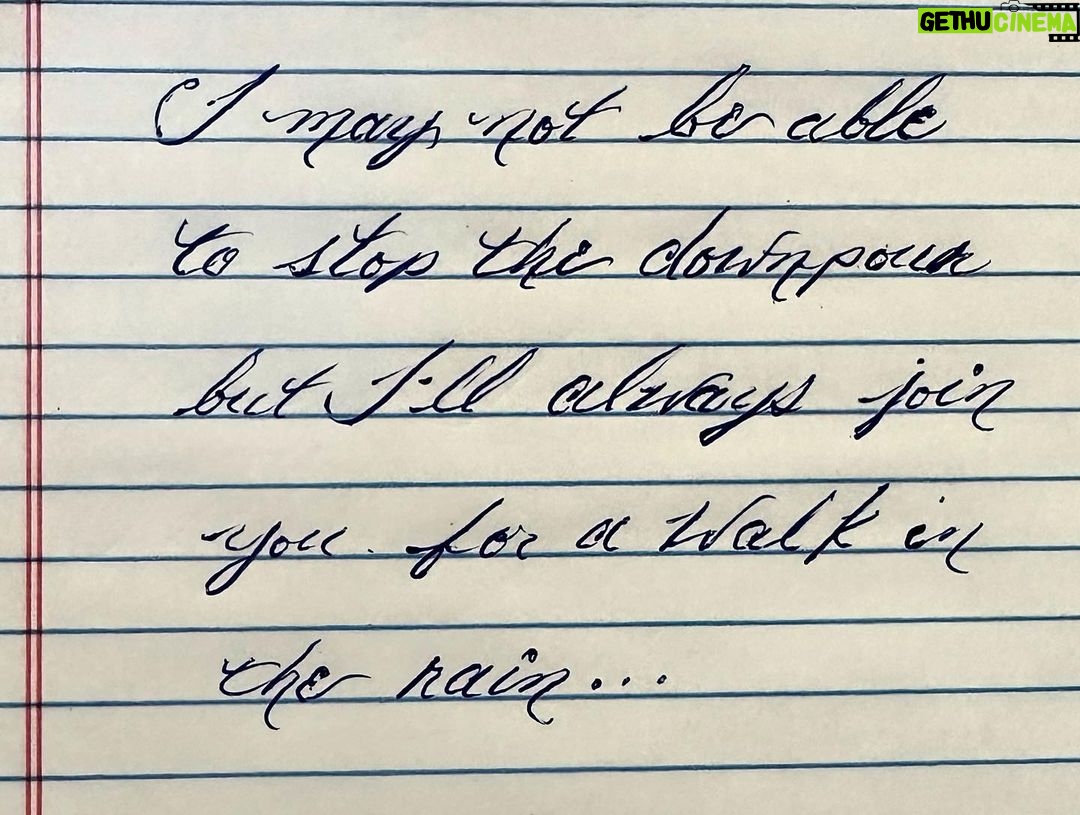 GETHUCINEMA
I may not be able
to stop the downpour
but I'll always join
you for a walk in
the rain...